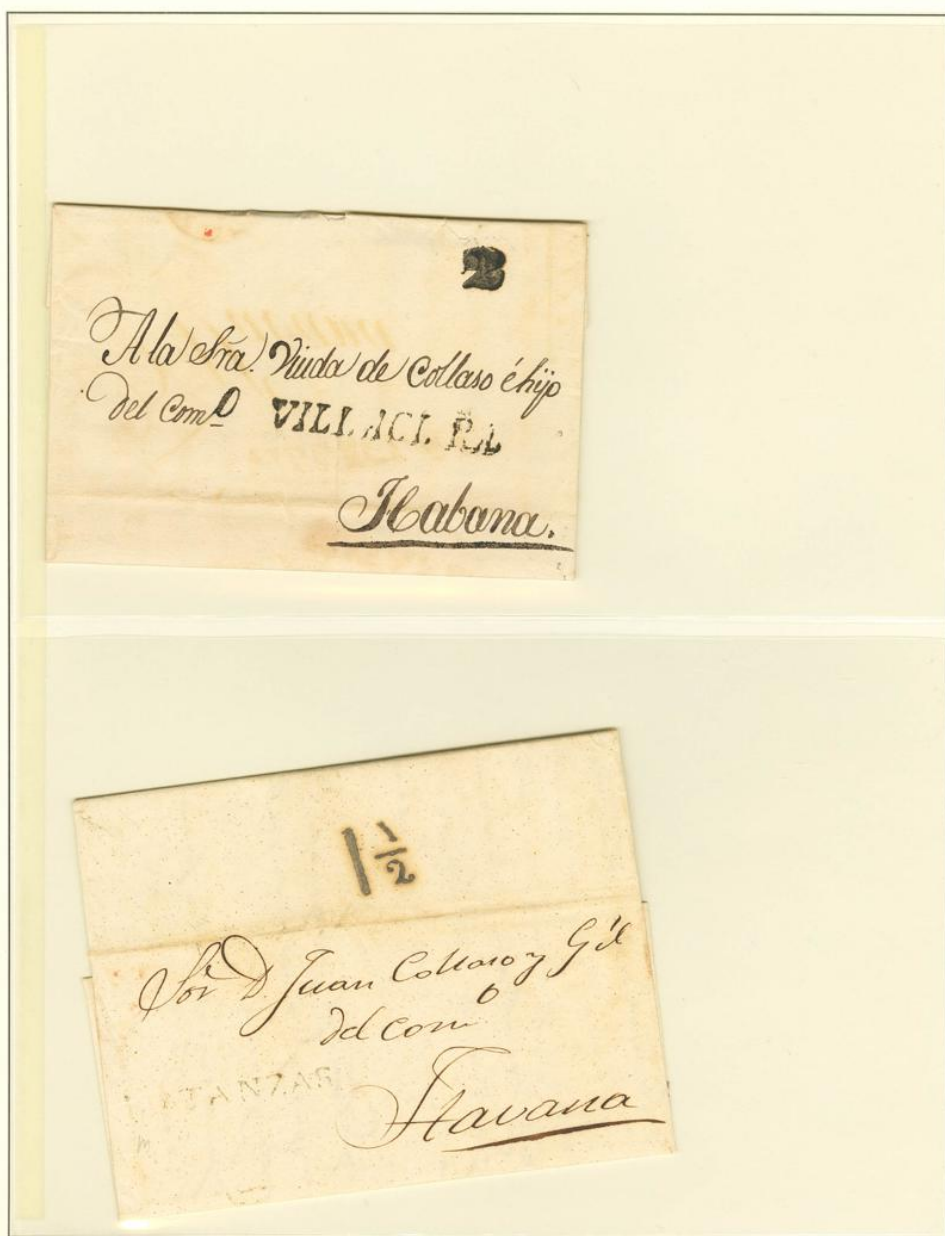 2
A la Sra. Viuda de Collaso é hijo
del Com.o VILLACLRA
Habana.
1 1/2
Sor D. Juan Collaso y Gil
del como
Havana